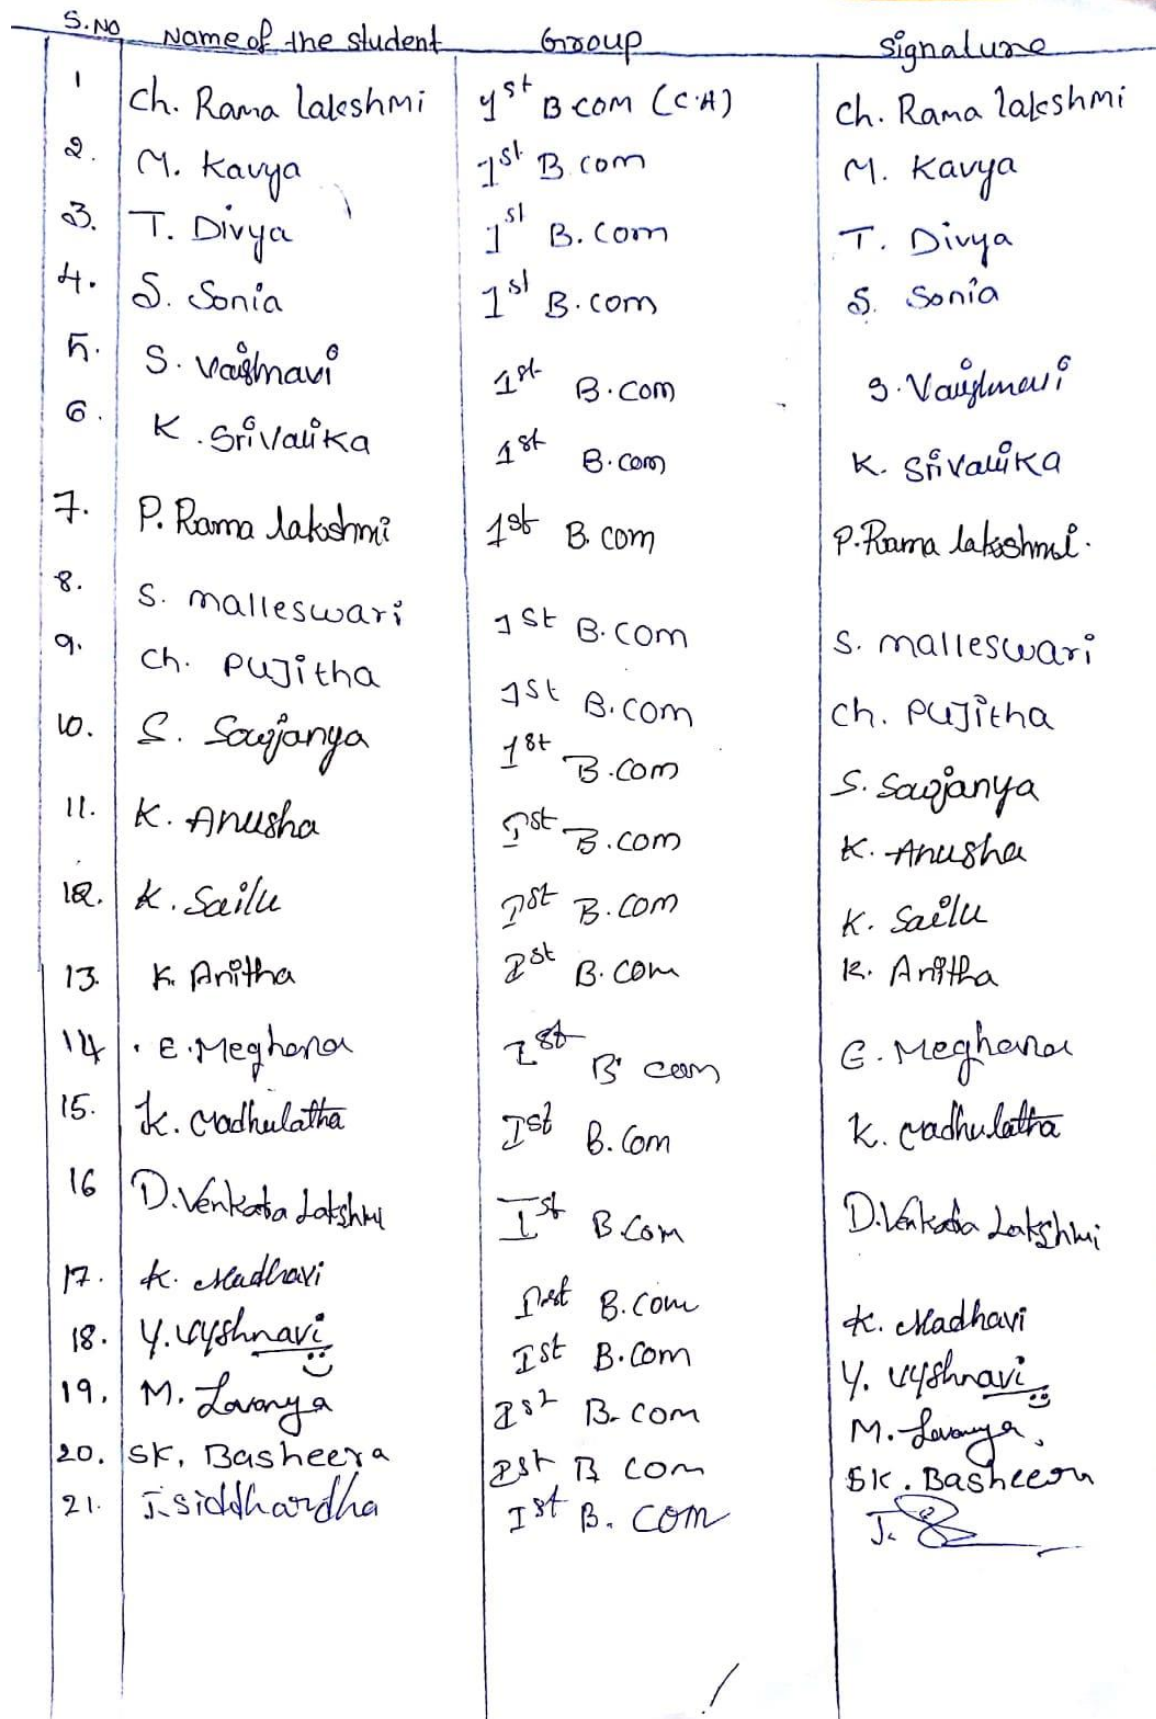 S.No Name of the student Group Signature
1 Ch. Rama lakshmi 1st B com (C.A) Ch. Rama lakshmi
2. M. Kavya 1st B. com M. Kavya
3. T. Divya 1st B. Com T. Divya
4. S. Sonia 1st B. com S. Sonia
5. S. Vaishnavi 1st B. com S. Vaishnavi
6. K. Srivallika 1st B. com K. Srivallika
7. P. Rama lakshmi 1st B. com P. Rama lakshmi.
8. S. malleswari 1st B. com S. malleswari
9. Ch. PUJitha 1st B. com Ch. PUJitha
10. S. Sowjanya 1st B. com S. Sowjanya
11. K. Anusha Ist B. com K. Anusha
12. K. Sailu Ist B. com K. Sailu
13. K. Anitha Ist B. com K. Anitha
14. E. Meghana Ist B. com E. Meghana
15. K. Madhulatha Ist B. Com K. Madhulatha
16 D. Venkata Lakshmi Ist B. Com D. Venkata Lakshmi
17. K. Madhavi Ist B. Com K. Madhavi
18. Y. Vyshnavi Ist B. Com Y. Vyshnavi
19. M. Lavanya Ist B. com M. Lavanya
20. SK. Basheera Ist B com SK. Basheera
21. J. siddhardha Ist B. com J.